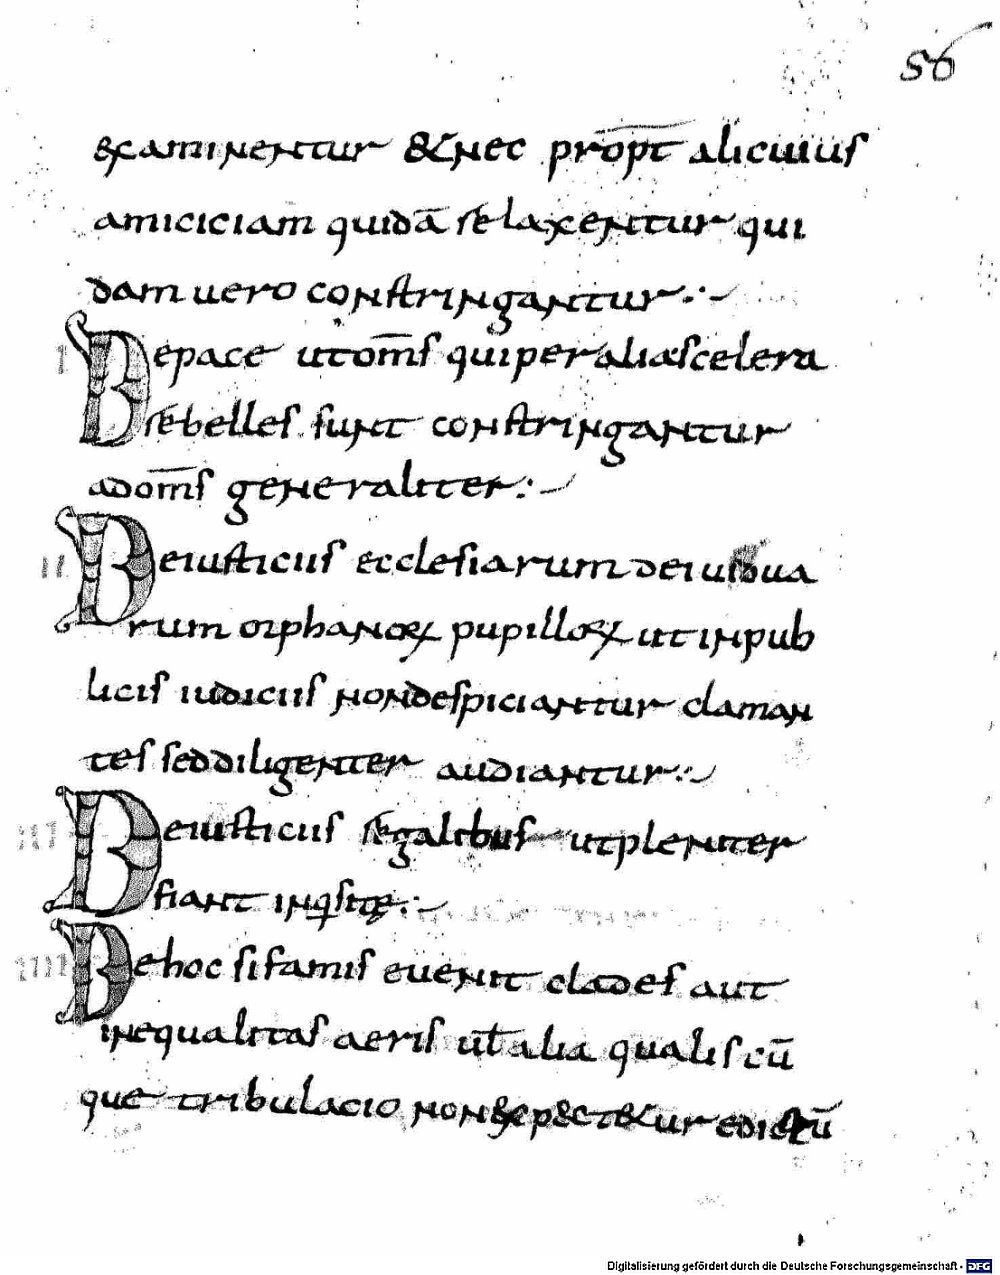 56
&xaminentur &nec prop̄t alicuius
amiciciam quidā relaxentur qui
dam uero constringantur
I De pace ut om̄s qui per alia scelera
rebelles sunt constringantur
ad om̄s generaliter
II De iusticiis ecclesiarum dei uidua
rum orphanoꝝ pupilloꝝ ut in pub
licis iudiciis non despiciantur claman
tes sed diligenter audiantur
III De iusticiis regalibus ut pleniter
fiant inq̇sitę
IIII De hoc si famis euenit clades aut
inequalitas aeris ul̄ alia qualiscū
que tribulacio non &xp&ct&ur edictū
Digitalisierung gefördert durch die Deutsche Forschungsgemeinschaft - DFG